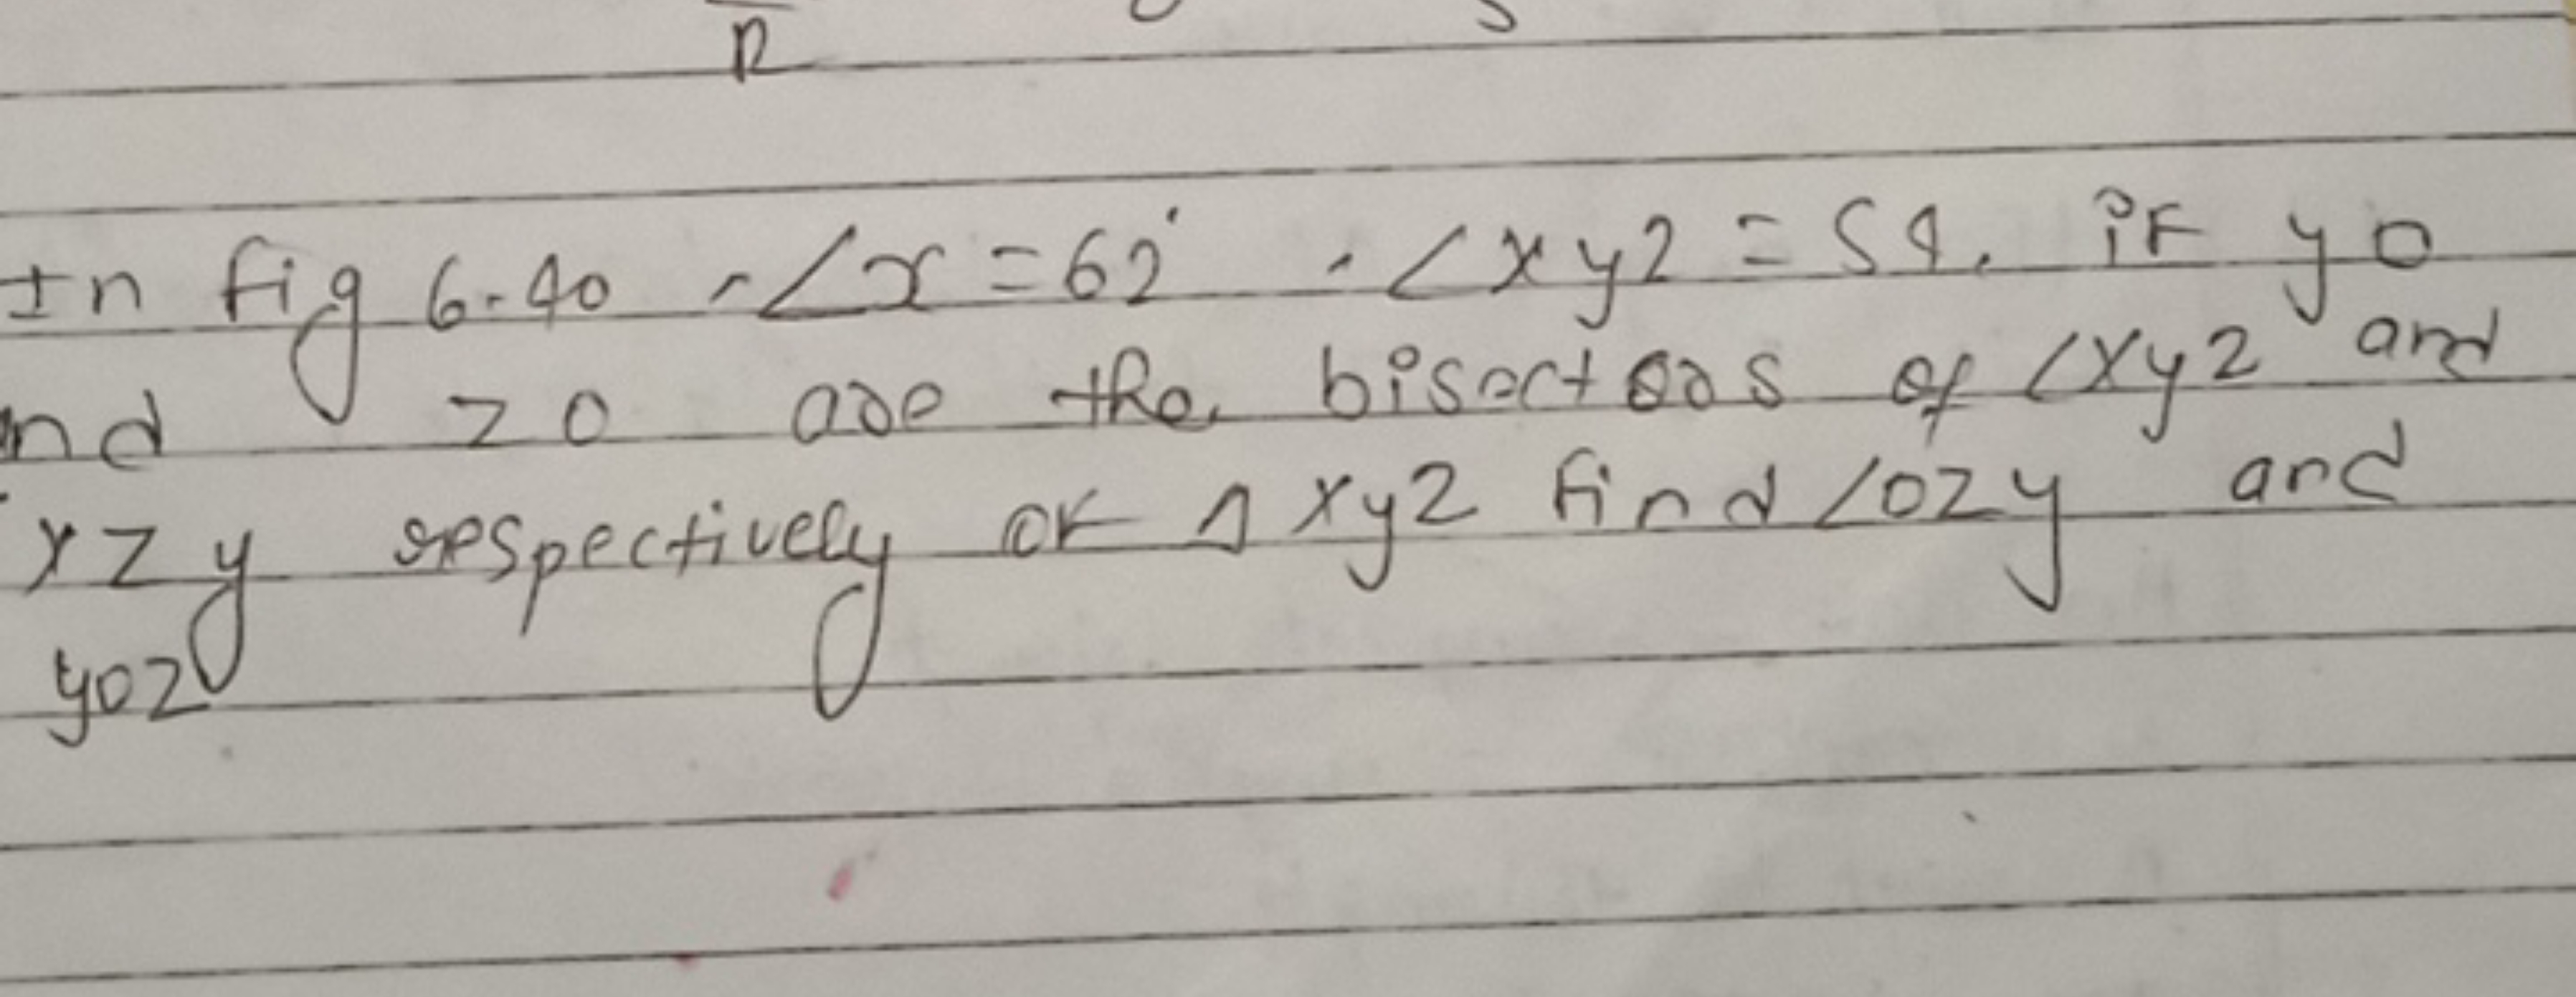 R
In fig 6.40 . ∠x = 62° . ∠xyz = 54. if yo
nd zo are the bisectors of ∠xyz and
xzy respectively of Δ xyz find ∠ozy and
yoz